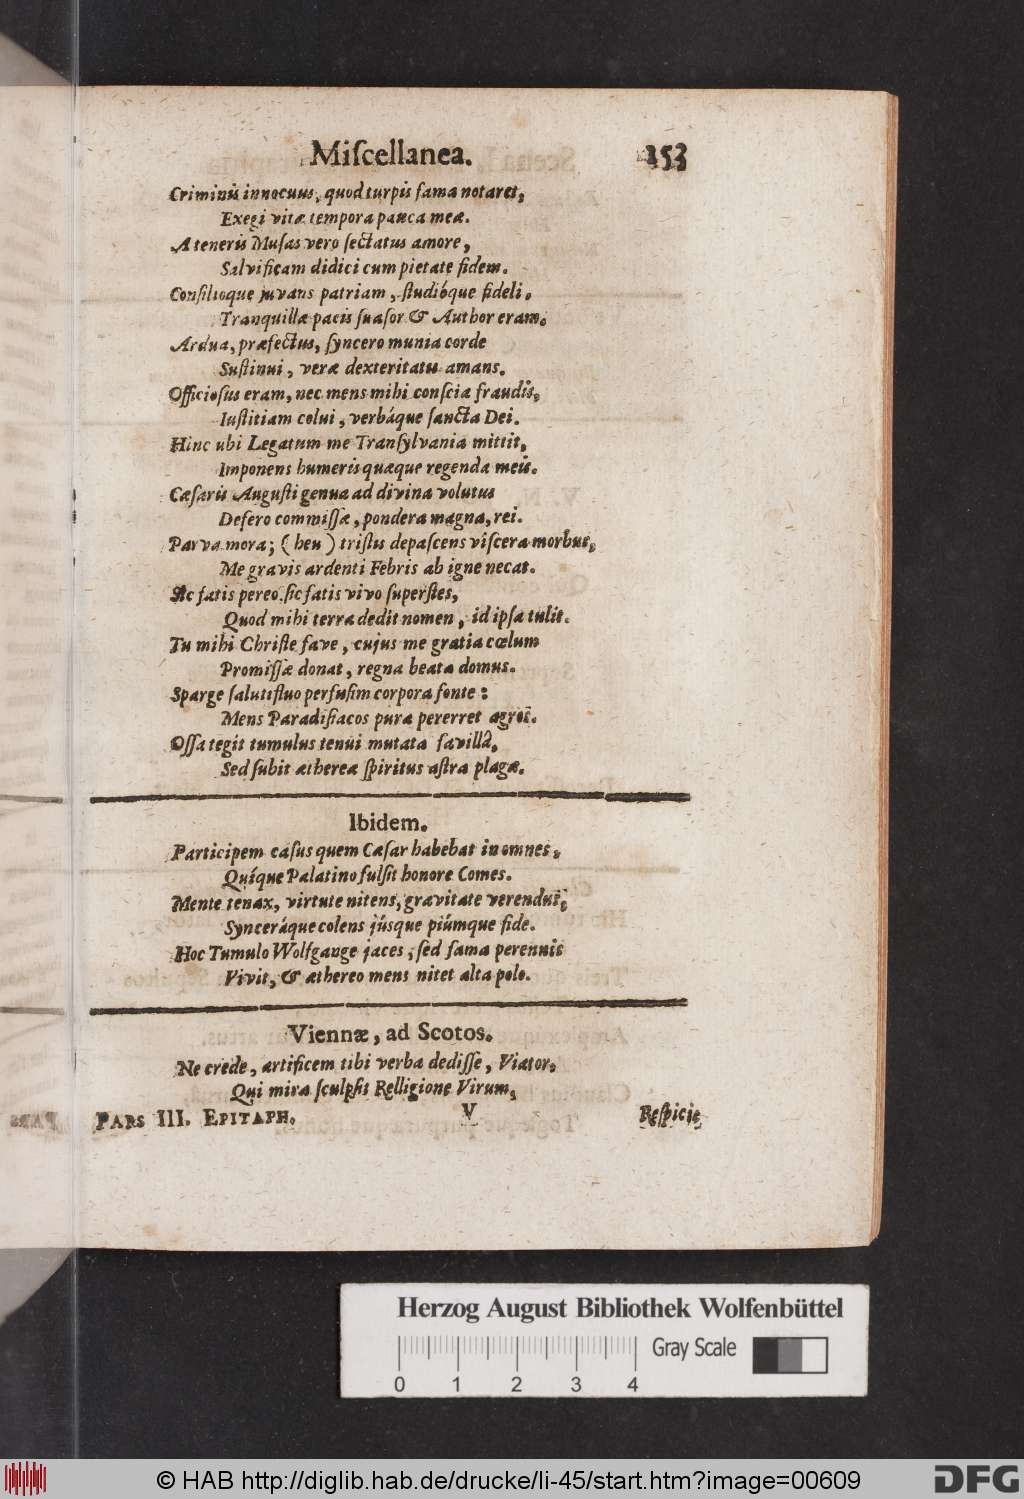 Miſcellanea. 353
Criminis innocuus, quod turpis fama notaret,
Exegi vitæ tempora pauca meæ.
A teneris Muſas vero ſectatus amore,
Salvificam didici cum pietate fidem.
Conſilioque juvans patriam, ſtudióque fideli.
Tranquillæ pacis ſuaſor & Author eram.
Ardua, præfectus, ſyncero munia corde
Suſtinui, veræ dexteritatis amans.
Officioſus eram, nec mens mihi conſcia fraudis,
Iuſtitiam colui, verbáque ſancta Dei.
Hinc ubi Legatum me Tranſylvania mittit,
Imponens humeris quæque regenda meis.
Cæſaris Auguſti genua ad divina volutus
Defero commiſſæ, pondera magna, rei.
Parva mora; (heu) triſtis depaſcens viſcera morbus,
Me gravis ardenti Febris ab igne necat.
Sic fatis pereo. ſic fatis vivo ſuperſtes,
Quod mihi terra dedit nomen, id ipſa tulit.
Tu mihi Chriſte fave, cujus me gratia cœlum
Promiſſæ donat, regna beata domus.
Sparge ſalutifluo perfuſim corpora fonte:
Mens Paradiſiacos pura pererret agros.
Oſſa tegit tumulus tenui mutata favillâ,
Sed ſubit æthereæ ſpiritus aſtra plagæ.
Ibidem.
Participem caſus quem Cæſar habebat in omnes,
Quíque Palatino fulſit honore Comes.
Mente tenax, virtute nitens, gravitate verendus,
Synceráque colens júsque piúmque fide.
Hoc Tumulo Wolfgange jaces, ſed fama perennis
Vivit, & æthereo mens nitet alta polo.
Viennæ, ad Scotos.
Ne crede, artificem tibi verba dediſſe, Viator,
Qui mira ſculpſit Relligione Virum,
PARS III. EPITAPH. V Reſpicis
Herzog August Bibliothek Wolfenbüttel
Gray Scale
0 1 2 3 4
© HAB http://diglib.hab.de/drucke/li-45/start.htm?image=00609
DFG